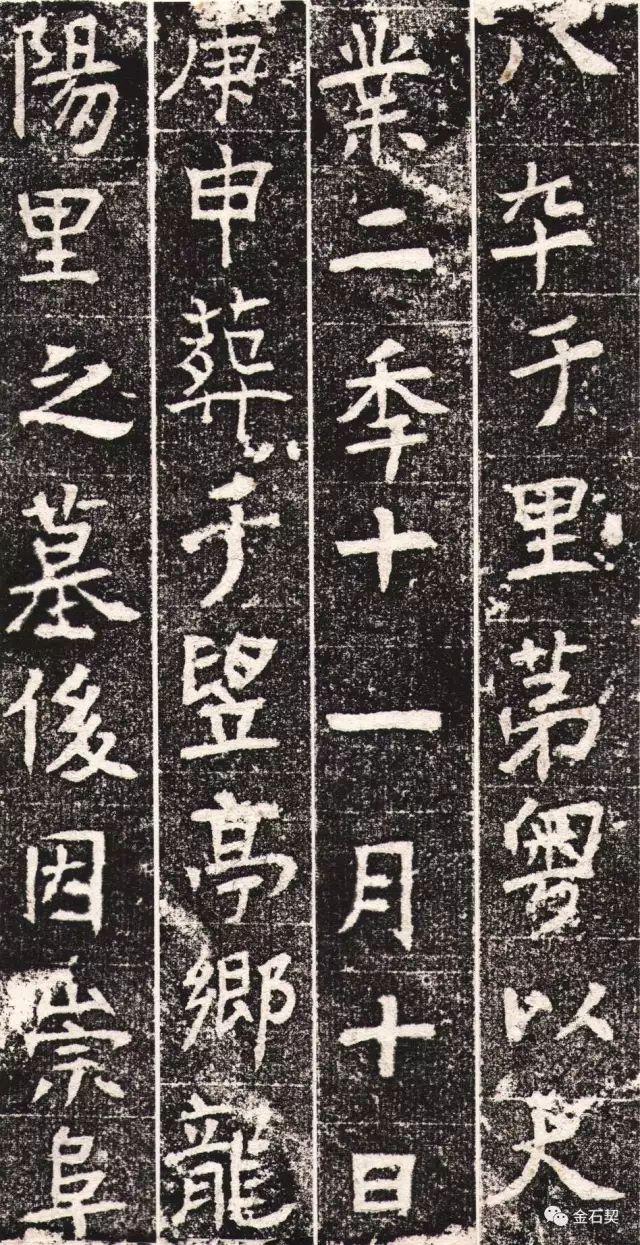 八卒于里苐粤以大
業二季十一月十日
庚申葬于竪亭鄉龍
陽里之墓後因崇阜
金石契